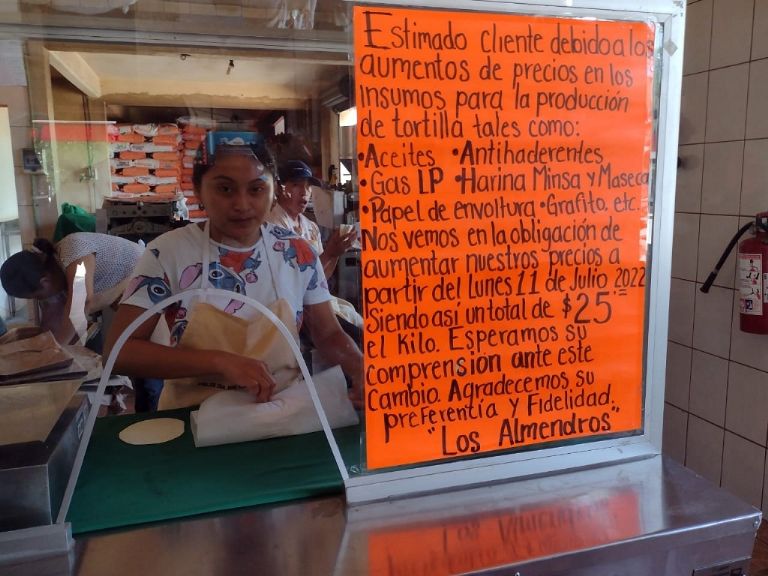 Estimado cliente debido a los
aumentos de precios en los
insumos para la producción
de tortilla tales como:
•Aceites •Antihaderentes
•Gas LP •Harina Minsa y Maseca
•Papel de envoltura •Grafito, etc.
Nos vemos en la obligación de
aumentar nuestros precios a
partir del Lunes 11 de Julio 2022
Siendo así un total de $25.=
el Kilo. Esperamos su
comprensión ante este
Cambio. Agradecemos su
preferentia y Fidelidad.
"Los Almendros"